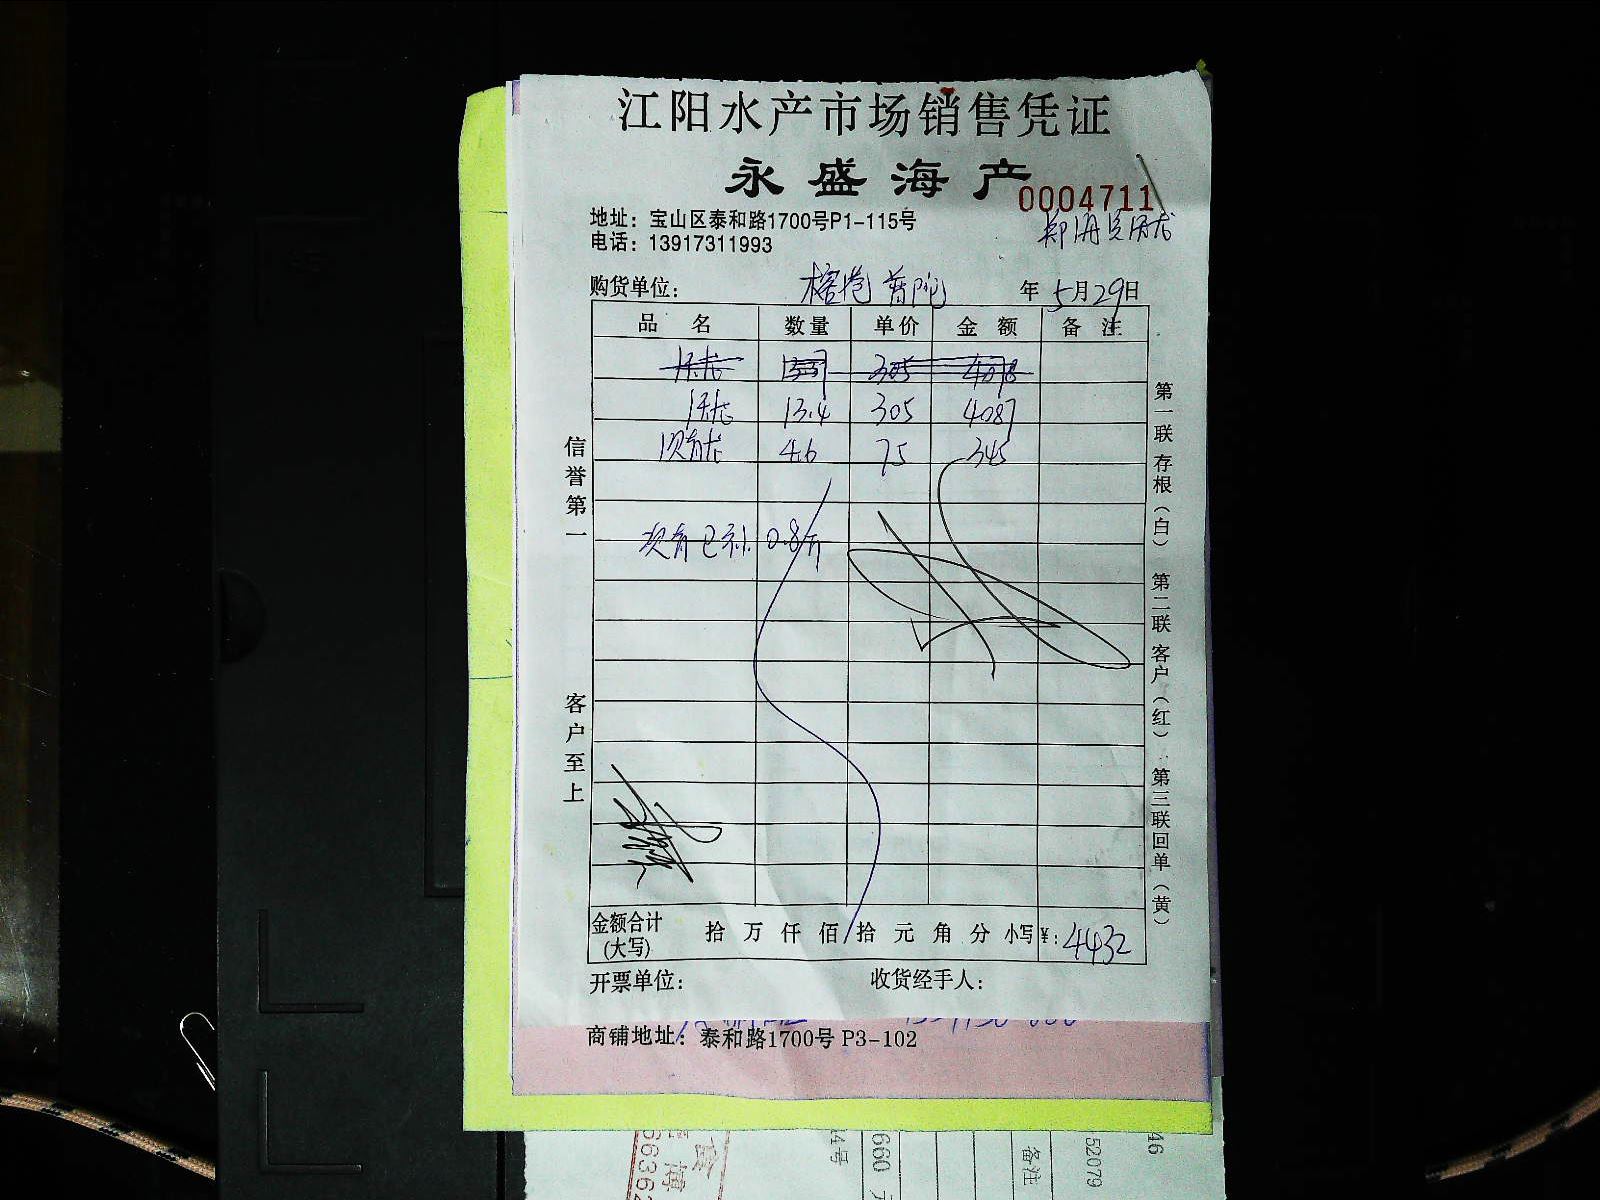 江阳水产市场销售凭证
永盛海产
0004711
地址：宝山区泰和路1700号P1-115号
电话：13917311993
购货单位： 榕港普陀 年 5月29日
品 名 数量 单价 金 额 备 注
305
13.4 305 4087
4.6 75 345
0.8斤
金额合计(大写) 拾 万 仟 佰 拾 元 角 分 小写¥：4432
开票单位： 收货经手人：
信誉第一
客户至上
第一联存根（白） 第二联客户（红） 第三联回单（黄）
商铺地址：泰和路1700号 P3-102
4号
660 元
备注
52079
46